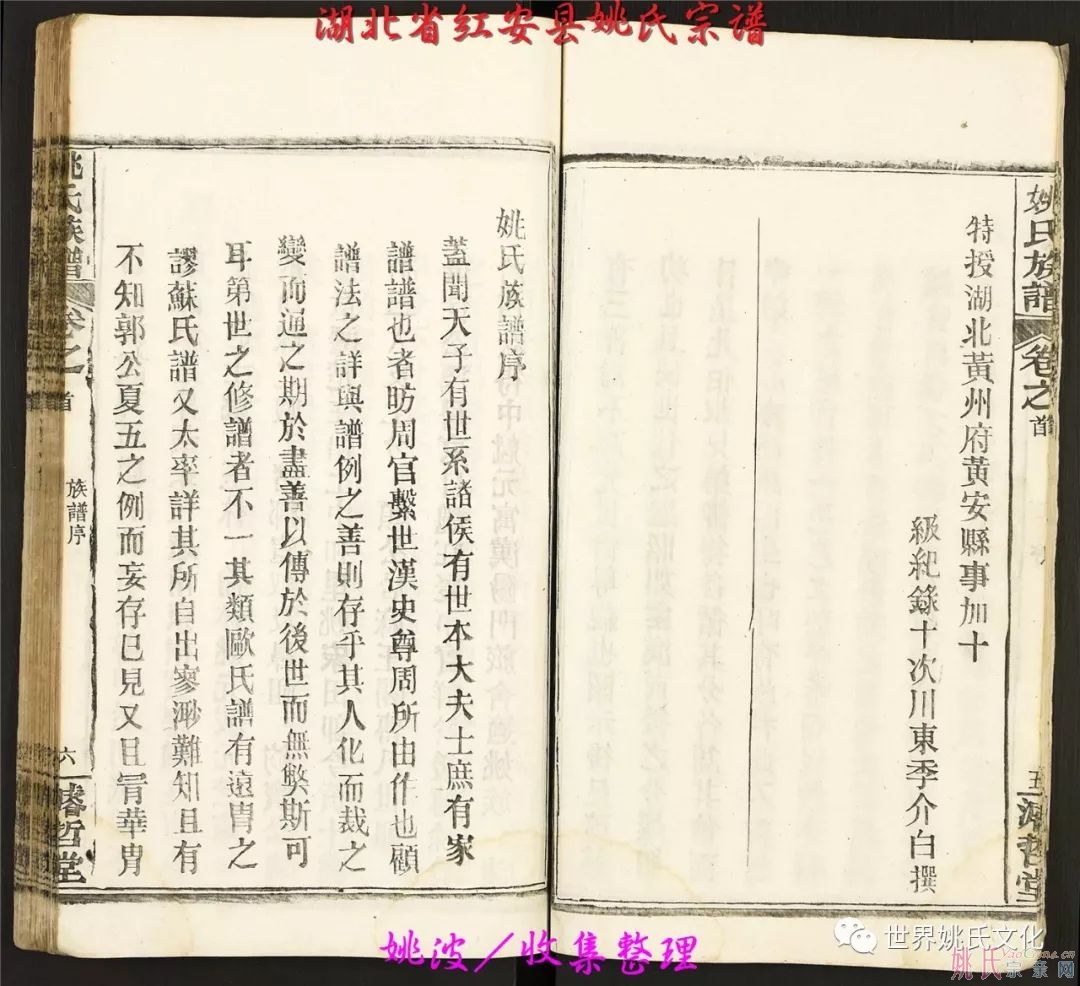 湖北省红安县姚氏宗谱
姚氏族譜
卷之首
五
濬哲堂
特授湖北黃州府黃安縣事加十
級紀錄十次川東季介白撰
姚氏族譜序
蓋聞天子有世系諸侯有世本大夫士庶有家
譜譜也者昉周官繫世漢史尊周所由作也顧
譜法之詳與譜例之善則存乎其人化而裁之
變而通之期於盡善以傳於後世而無弊斯可
耳第世之修譜者不一其類歐氏譜有遠胄之
謬蘇氏譜又太率詳其所自出寥渺難知且有
不知郭公夏五之例而妄存已見又且冐華胄
姚氏族譜
卷之首
族譜序
六
濬哲堂
姚波/收集整理
世界姚氏文化
姚氏宗亲网